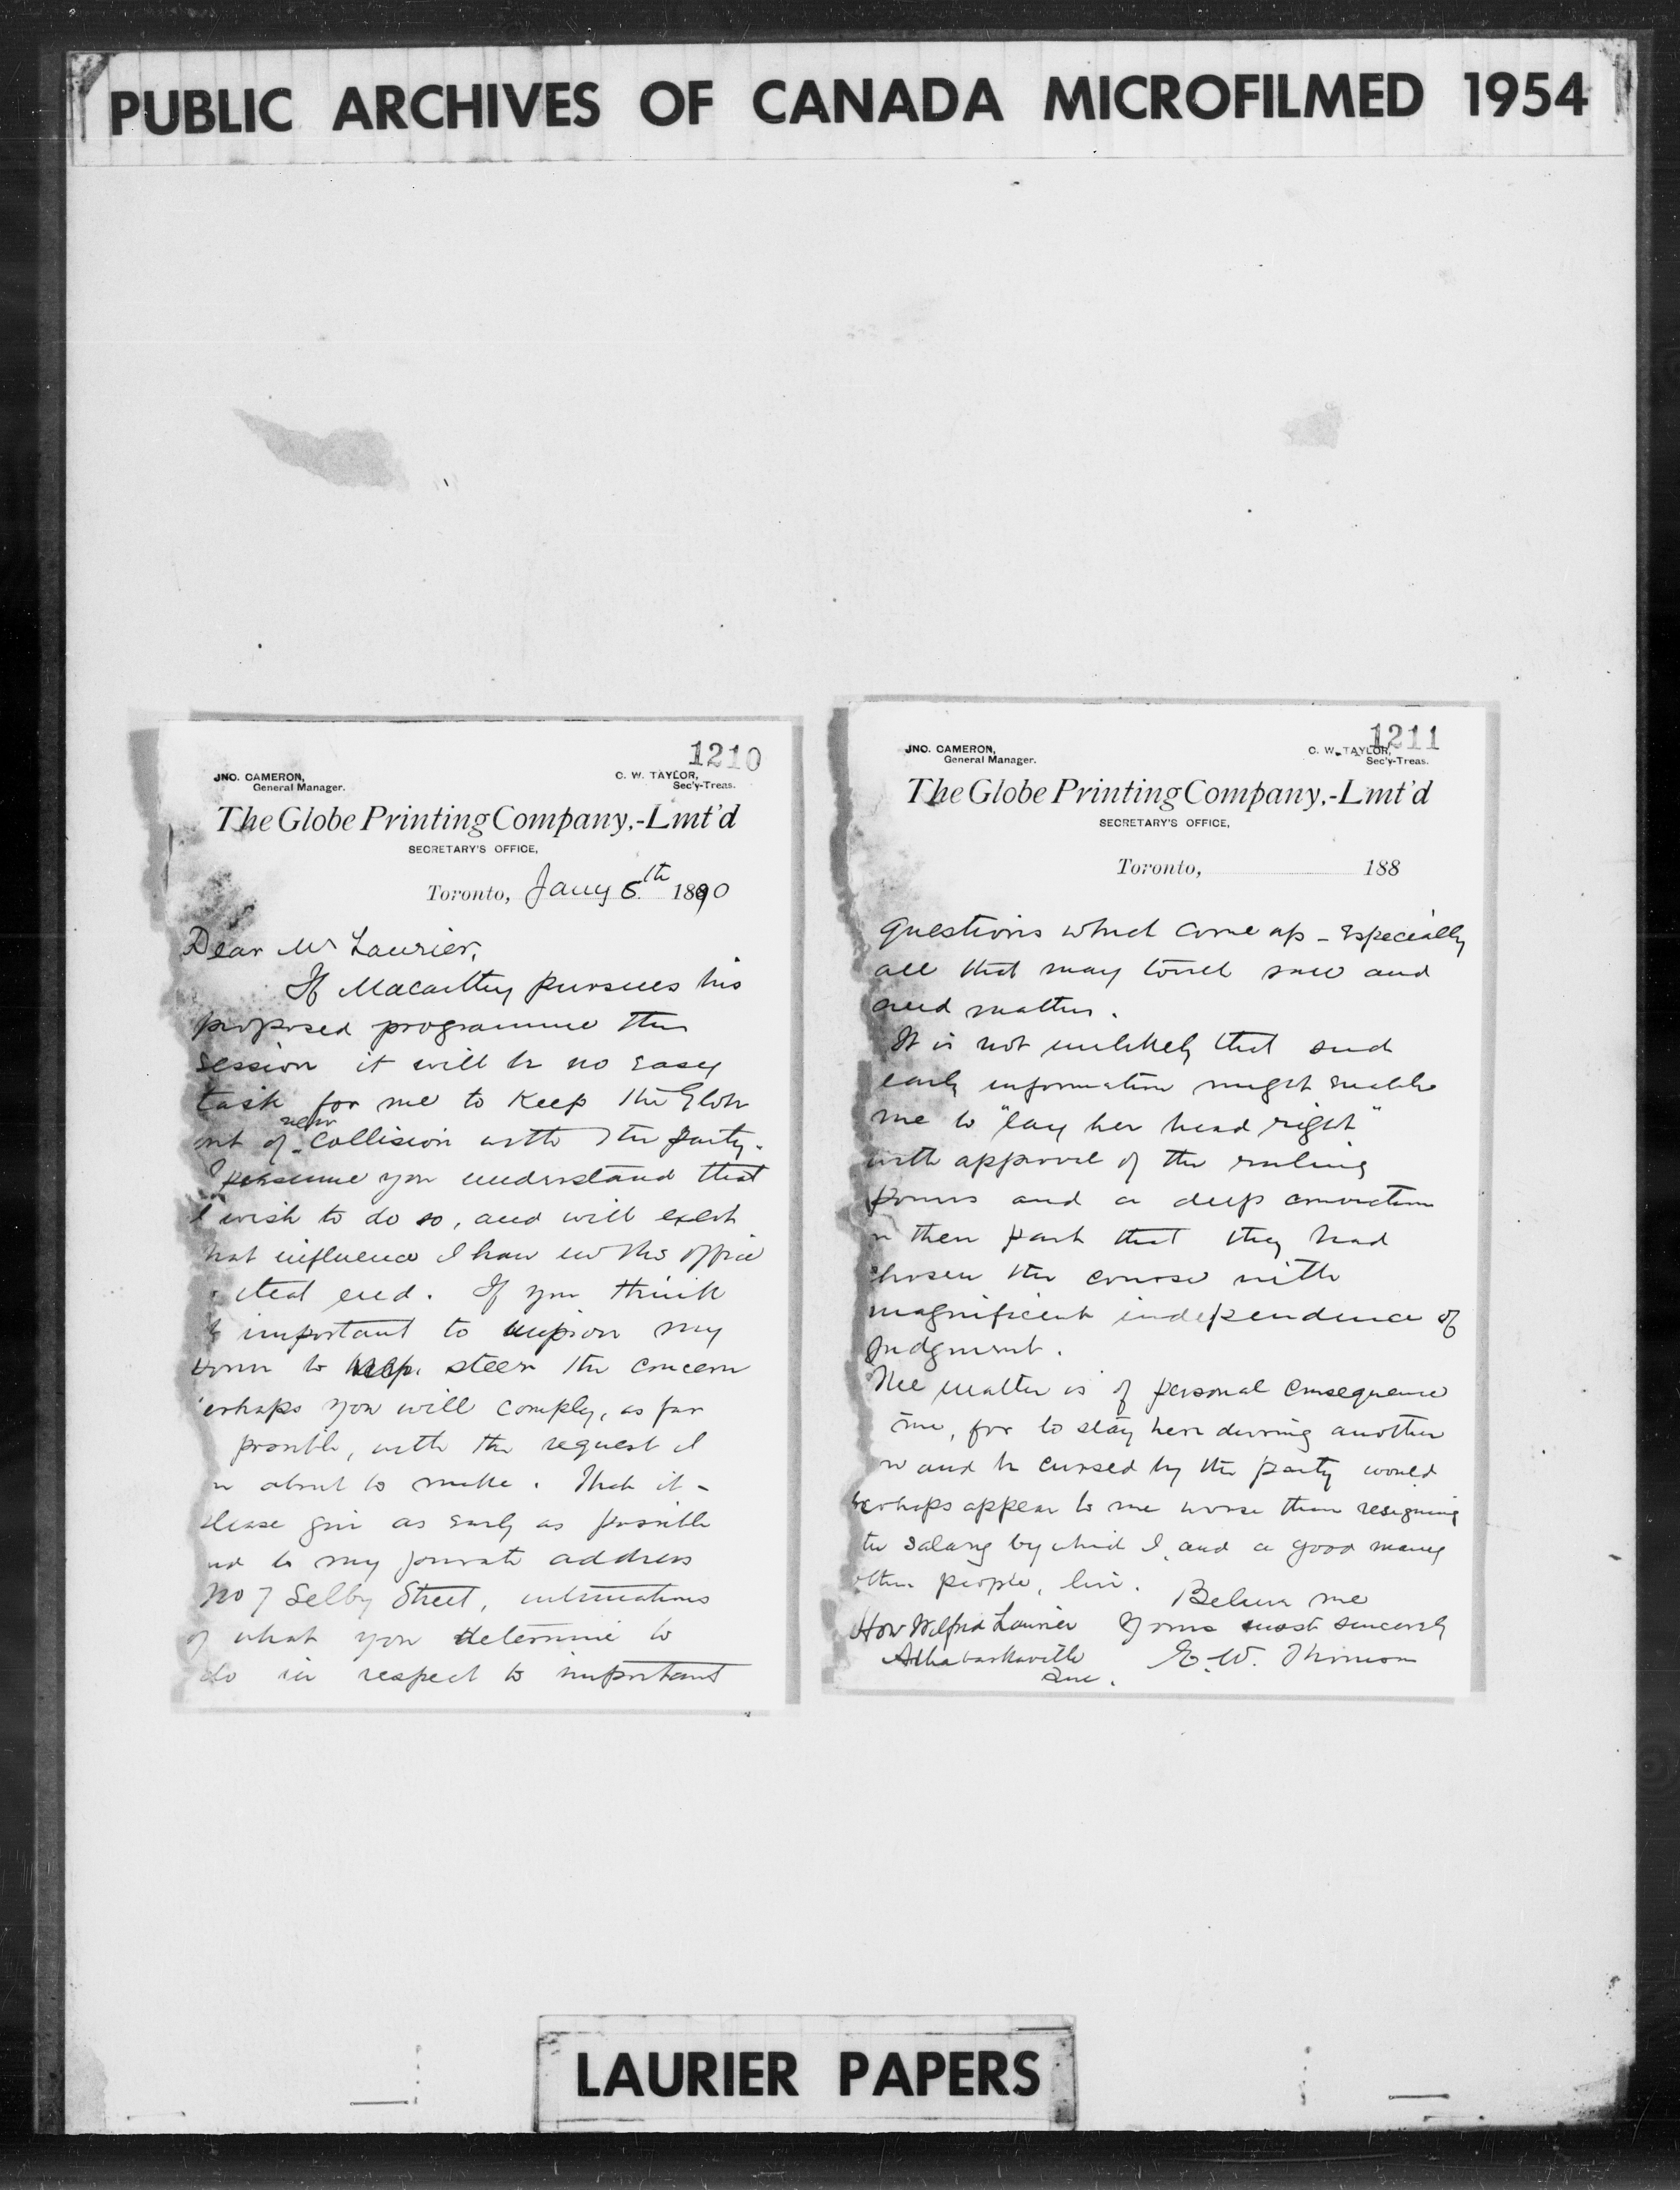 PUBLIC ARCHIVES OF CANADA MICROFILMED 1954
1210
JNO. CAMERON,
General Manager.
C. W. TAYLOR,
Sec'y-Treas.
The Globe Printing Company,-Lmt'd
SECRETARY'S OFFICE,
Toronto, Jany 6th 1890
Dear Mr Laurier,
If Macarthy pursues his
proposed programme this
session it will be no easy
task for me to keep the Globe
out of new collision with the party.
I presume you understand that
I wish to do so, and will exert
what influence I have in the office
that end. If you think
important to my
to help steer the concern
perhaps you will comply, as far
possible, with the request I
about to make. That is -
please give as early as possible
and to my private address
No 7 Selby Street, intimations
of what you determine to
do in respect to important
1211
JNO. CAMERON,
General Manager.
C. W. TAYLOR,
Sec'y-Treas.
The Globe Printing Company,-Lmt'd
SECRETARY'S OFFICE,
Toronto, 188
questions which come up - Especially
all that may touch race and
creed matters.
It is not unlikely that such
early information might enable
me to "lay her head right"
with approval of the ruling
powers and a deep conviction
on their part that they had
chosen the course with
magnificent independence of
judgment.
The matter is of personal consequence
me, for to stay here during another
row and be cursed by the party would
perhaps appear to me worse than resigning
the salary by which I, and a good many
other people, live. Believe me
Hon Wilfrid Laurier Yours most sincerely
Athabaskaville E. W. Thomson
Que.
LAURIER PAPERS